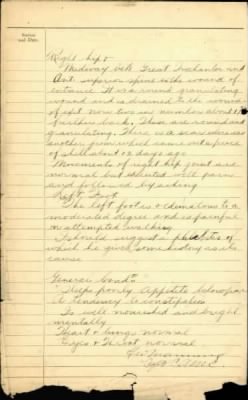 Station
and Date.
Right hip :-
Midway betw Great trochanter and
Ant. superior spine is the wound of
entrance. It is a round granulating
wound and is drained to the wound
of exit now two in number about 1½"
farther back. These are round and
granulating. There is a scar above
another from which came out a piece
of shell about 12 days ago
Movements of right hip joint are
normal but attended with pain
and followed by aching
Left Foot
The left foot is oedematous to a
moderated degree and is painful
on attempted walking
I should suggest a phlebitis of
which he gives some history as its
cause
General Condn
Sleeps poorly Appetite below par
A tendency to constipation
Is well nourished and bright
mentally
Heart & lungs normal
Eyes & Throat normal